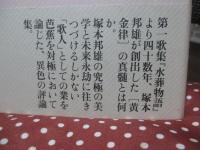 第一歌集『水葬物語』
より四十数年、塚本
邦雄が創出した「黄
金律」の真髄とは何
か。
塚本邦雄の究極の美
学と未来永劫に往き
つづけるしかない
「歌人」としての業を
芭蕉を対極において
論じた、異色の評論
集。